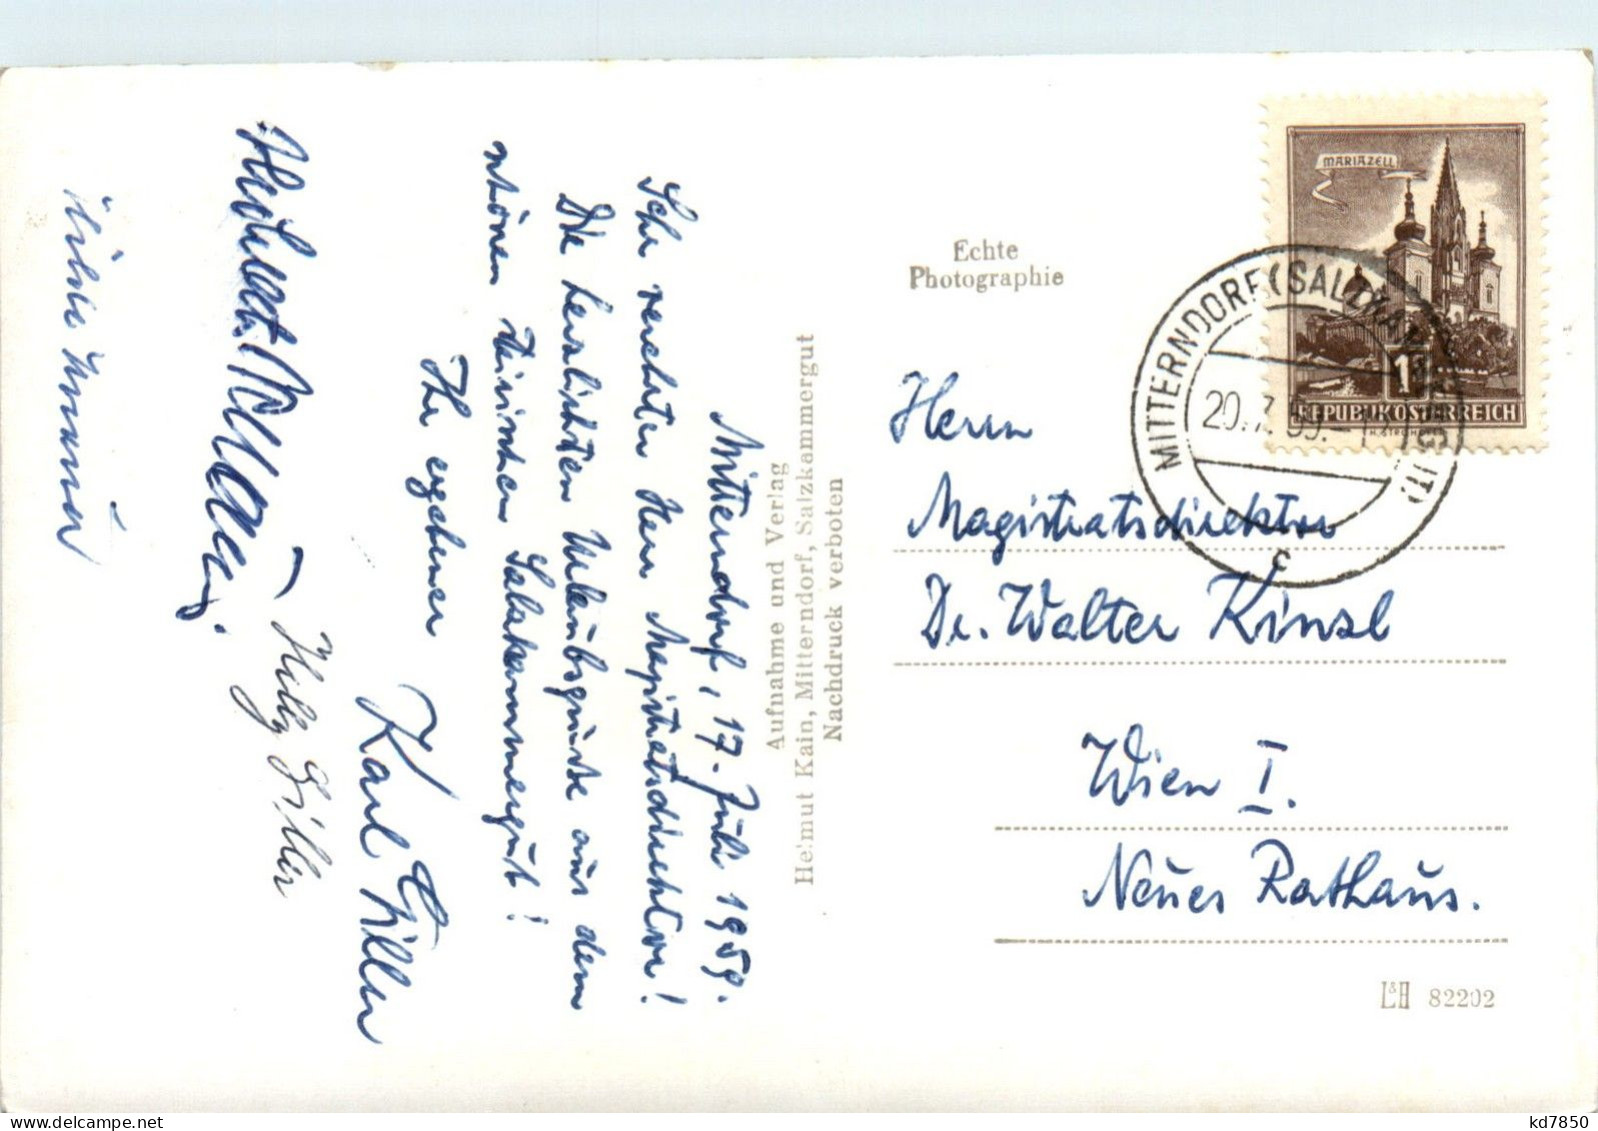 Mitterndorf, 17. Juli 1959.
Sehr verehrter Herr Magistratsdirektor!
Die herzlichsten Urlaubsgrüße aus dem
schönen steirischen Salzkammergut!
Ihr ergebener
Karl
Aufnahme und Verlag
Helmut Kain, Mitterndorf, Salzkammergut
Nachdruck verboten
Echte
Photographie
MARIAZELL
1
REPUBLIK ÖSTERREICH
MITTERNDORF (SALZKAMMERGUT)
20.7.59.
c
Herrn
Magistratsdirektor
Dr. Walter Kinzl
Wien I.
Neues Rathaus.
L&H 82202
kd7850